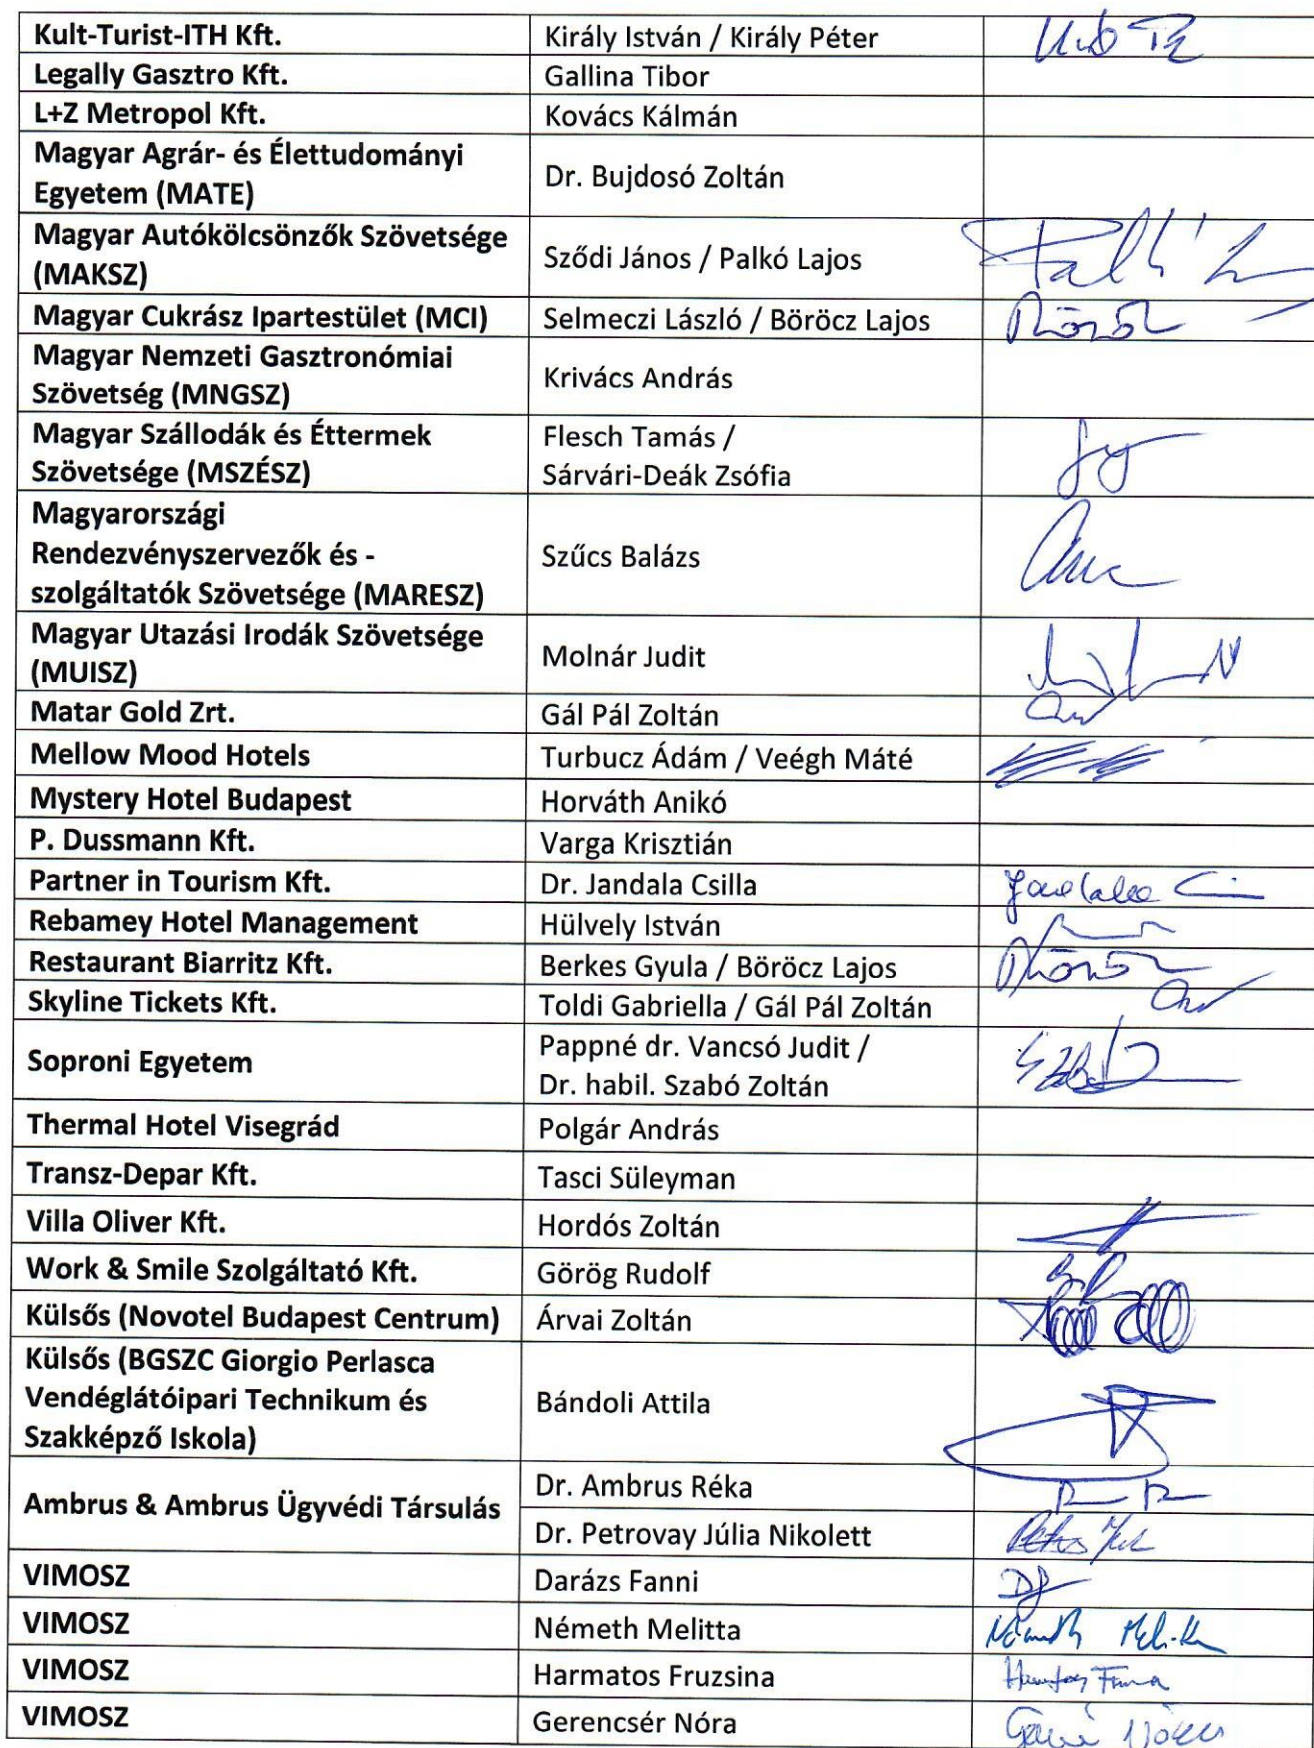 Kult-Turist-ITH Kft. Király István / Király Péter
Legally Gasztro Kft. Gallina Tibor
L+Z Metropol Kft. Kovács Kálmán
Magyar Agrár- és Élettudományi
Egyetem (MATE) Dr. Bujdosó Zoltán
Magyar Autókölcsönzők Szövetsége
(MAKSZ) Sződi János / Palkó Lajos
Magyar Cukrász Ipartestület (MCI) Selmeczi László / Böröcz Lajos
Magyar Nemzeti Gasztronómiai
Szövetség (MNGSZ) Krivács András
Magyar Szállodák és Éttermek Flesch Tamás /
Szövetsége (MSZÉSZ) Sárvári-Deák Zsófia
Magyarországi
Rendezvényszervezők és - Szűcs Balázs
szolgáltatók Szövetsége (MARESZ)
Magyar Utazási Irodák Szövetsége
(MUISZ) Molnár Judit
Matar Gold Zrt. Gál Pál Zoltán
Mellow Mood Hotels Turbucz Ádám / Veégh Máté
Mystery Hotel Budapest Horváth Anikó
P. Dussmann Kft. Varga Krisztián
Partner in Tourism Kft. Dr. Jandala Csilla
Rebamey Hotel Management Hülvely István
Restaurant Biarritz Kft. Berkes Gyula / Böröcz Lajos
Skyline Tickets Kft. Toldi Gabriella / Gál Pál Zoltán
Soproni Egyetem Pappné dr. Vancsó Judit /
Dr. habil. Szabó Zoltán
Thermal Hotel Visegrád Polgár András
Transz-Depar Kft. Tasci Süleyman
Villa Oliver Kft. Hordós Zoltán
Work & Smile Szolgáltató Kft. Görög Rudolf
Külsős (Novotel Budapest Centrum) Árvai Zoltán
Külsős (BGSZC Giorgio Perlasca
Vendéglátóipari Technikum és Bándoli Attila
Szakképző Iskola)
Ambrus & Ambrus Ügyvédi Társulás Dr. Ambrus Réka
Dr. Petrovay Júlia Nikolett
VIMOSZ Darázs Fanni
VIMOSZ Németh Melitta
VIMOSZ Harmatos Fruzsina
VIMOSZ Gerencsér Nóra